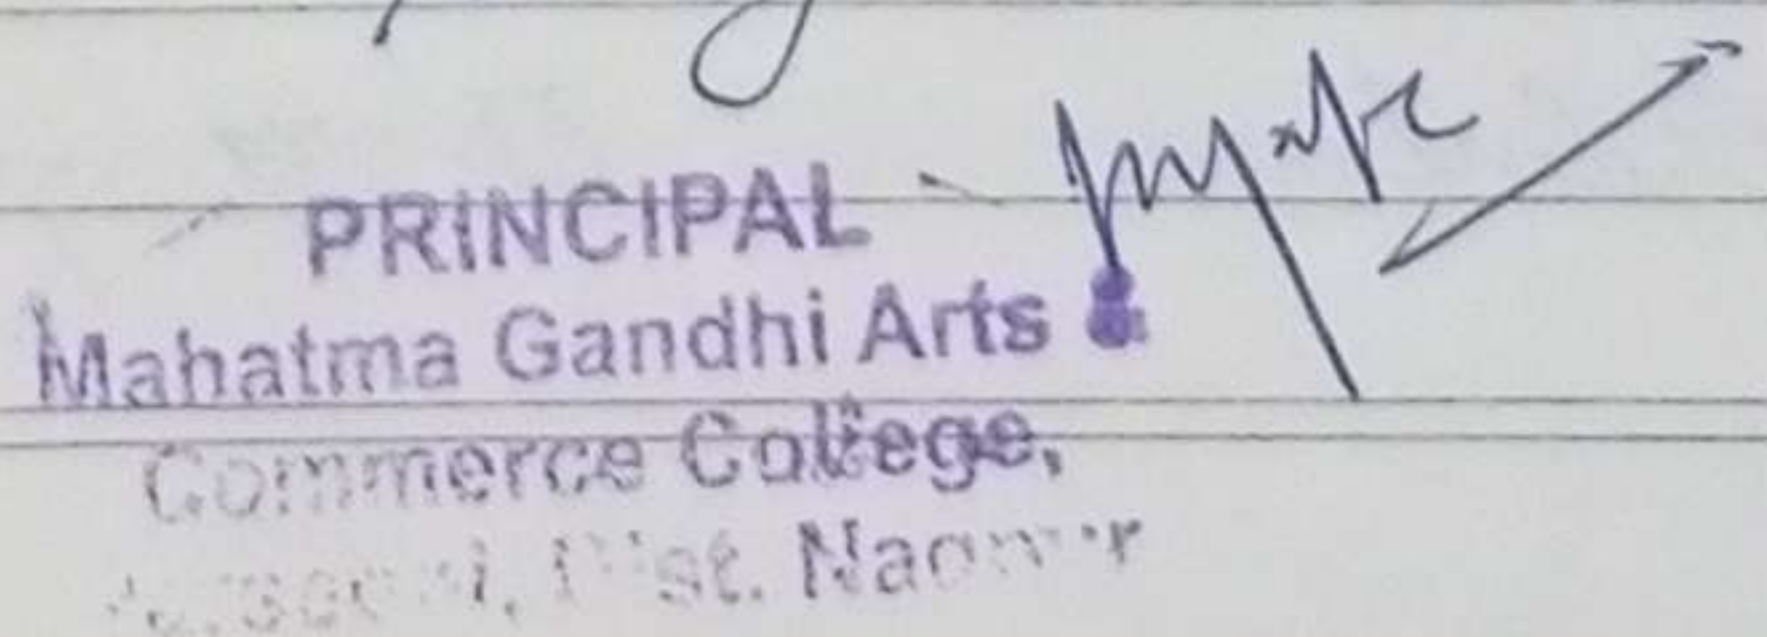 PRINCIPAL
Mahatma Gandhi Arts &
Commerce College,
Dist. Nagpur